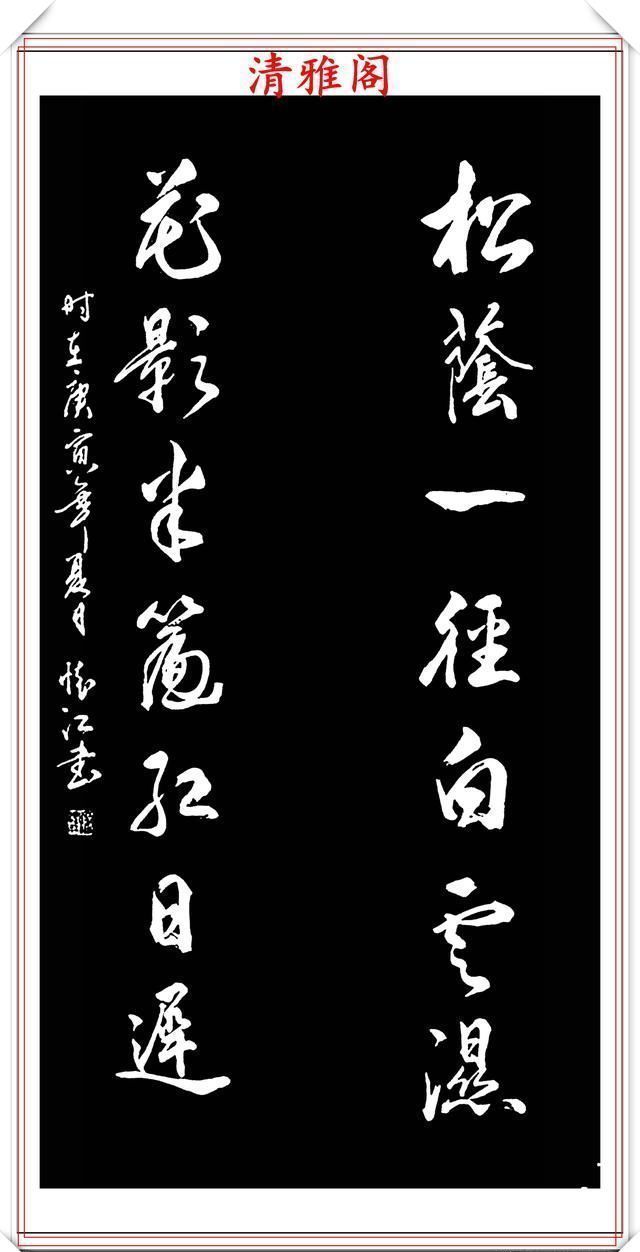 清雅阁
松蔭一徑白云濕
花影半簾紅日遲
时在庚寅年夏日 懷江书